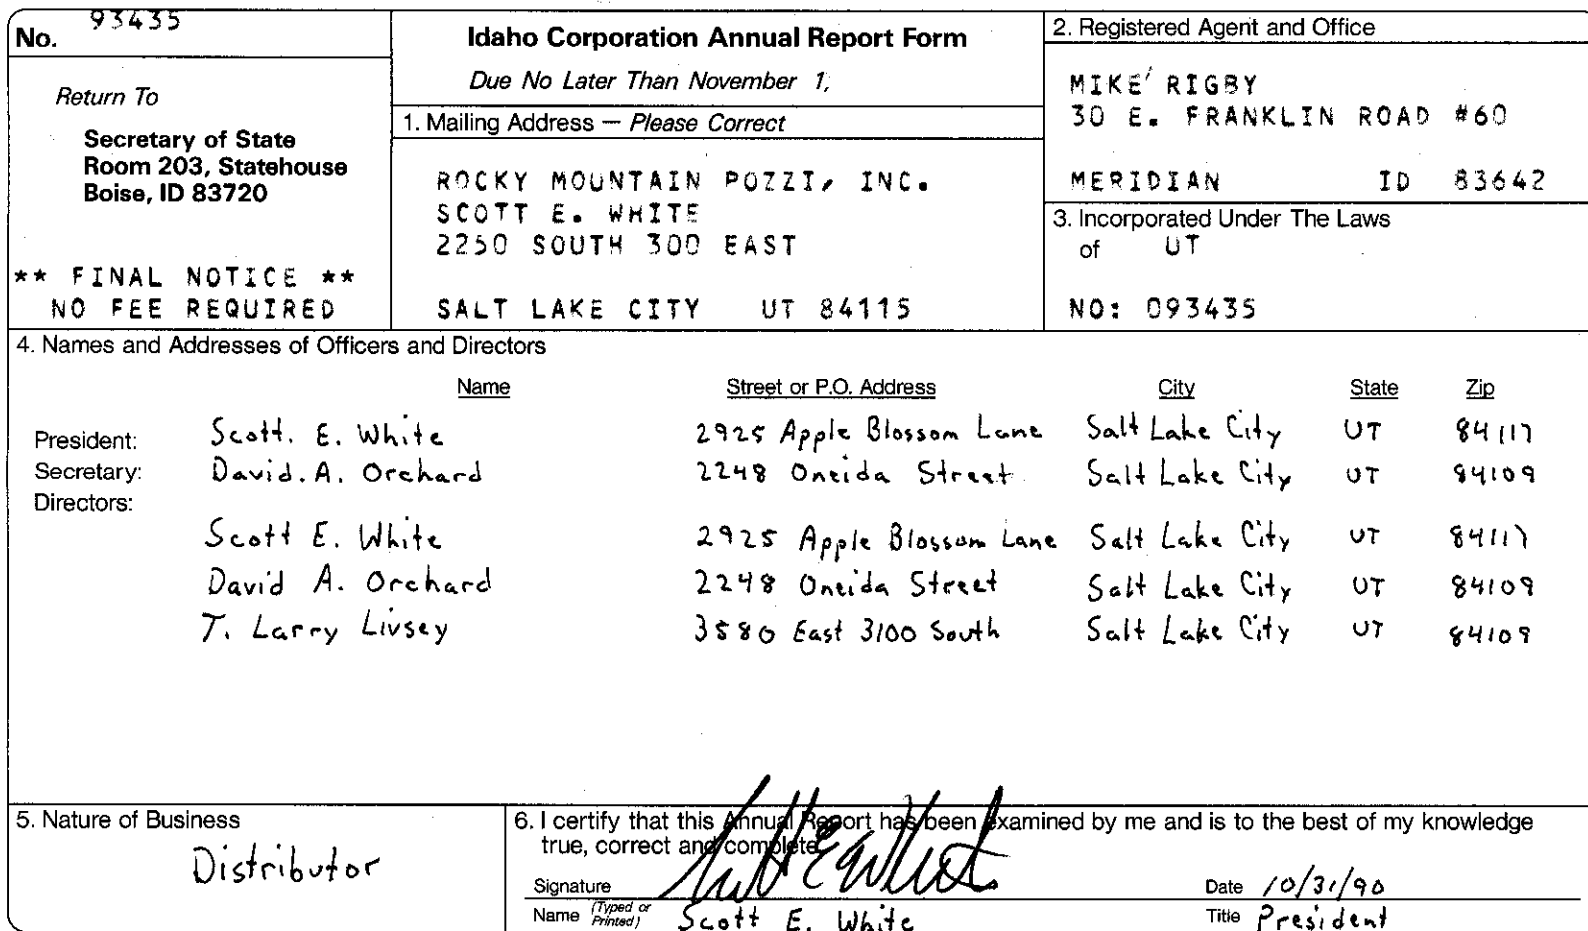 No. 93435
Return To
Secretary of State
Room 203, Statehouse
Boise, ID 83720
** FINAL NOTICE **
NO FEE REQUIRED
Idaho Corporation Annual Report Form
Due No Later Than November 1,
1. Mailing Address — Please Correct
ROCKY MOUNTAIN POZZI, INC.
SCOTT E. WHITE
2250 SOUTH 300 EAST
SALT LAKE CITY UT 84115
2. Registered Agent and Office
MIKE RIGBY
30 E. FRANKLIN ROAD #60
MERIDIAN ID 83642
3. Incorporated Under The Laws
of UT
NO: 093435
4. Names and Addresses of Officers and Directors
Name Street or P.O. Address City State Zip
President: Scott. E. White 2925 Apple Blossom Lane Salt Lake City UT 84117
Secretary: David. A. Orchard 2248 Oneida Street Salt Lake City UT 84109
Directors:
Scott E. White 2925 Apple Blossom Lane Salt Lake City UT 84117
David A. Orchard 2248 Oneida Street Salt Lake City UT 84109
T. Larry Livsey 3580 East 3100 South Salt Lake City UT 84109
5. Nature of Business
Distributor
6. I certify that this Annual Report has been examined by me and is to the best of my knowledge
true, correct and complete
Signature Scott E White Date 10/31/90
Name (Typed or Printed) Scott E. White Title President